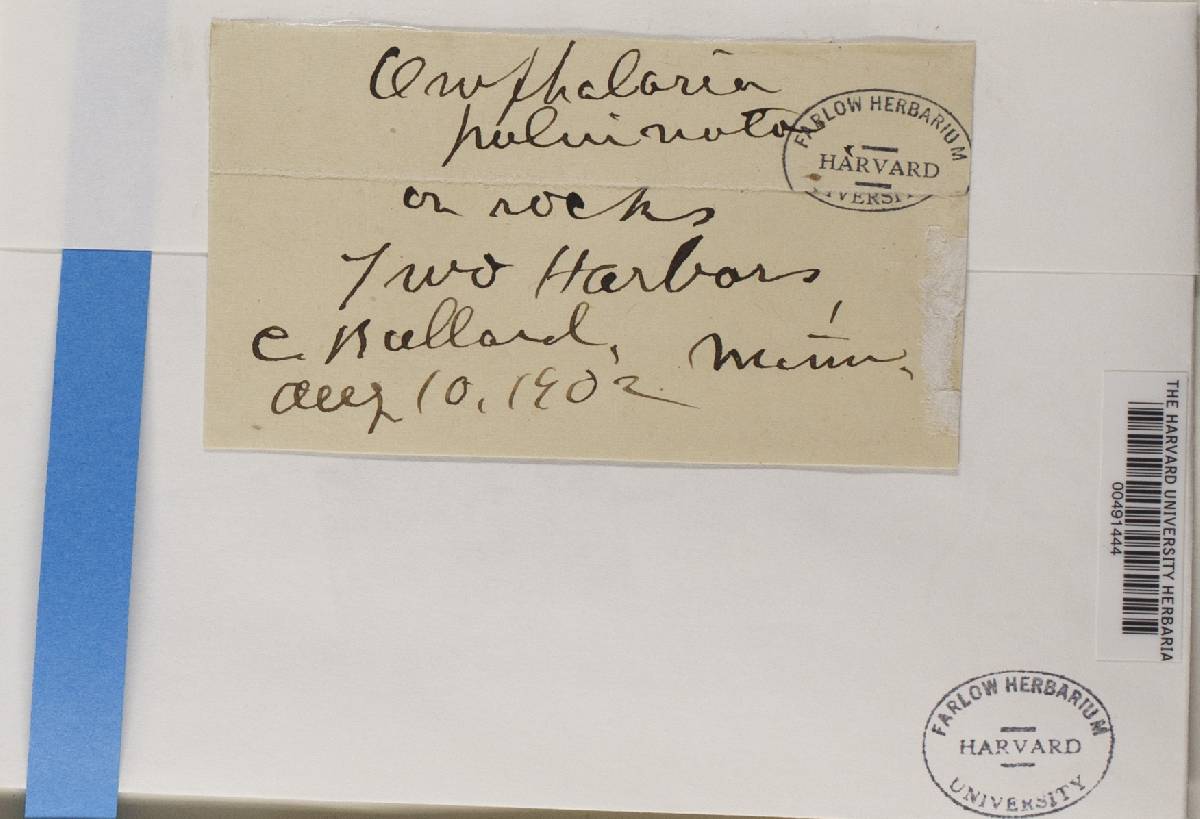 Omphalaria
pulvinata
on rocks
Two Harbors,
Minn.
C. Ballard,
Aug 10, 1902
FARLOW HERBARIUM
HARVARD
UNIVERSITY
THE HARVARD UNIVERSITY HERBARIA
00491444
FARLOW HERBARIUM
HARVARD
UNIVERSITY